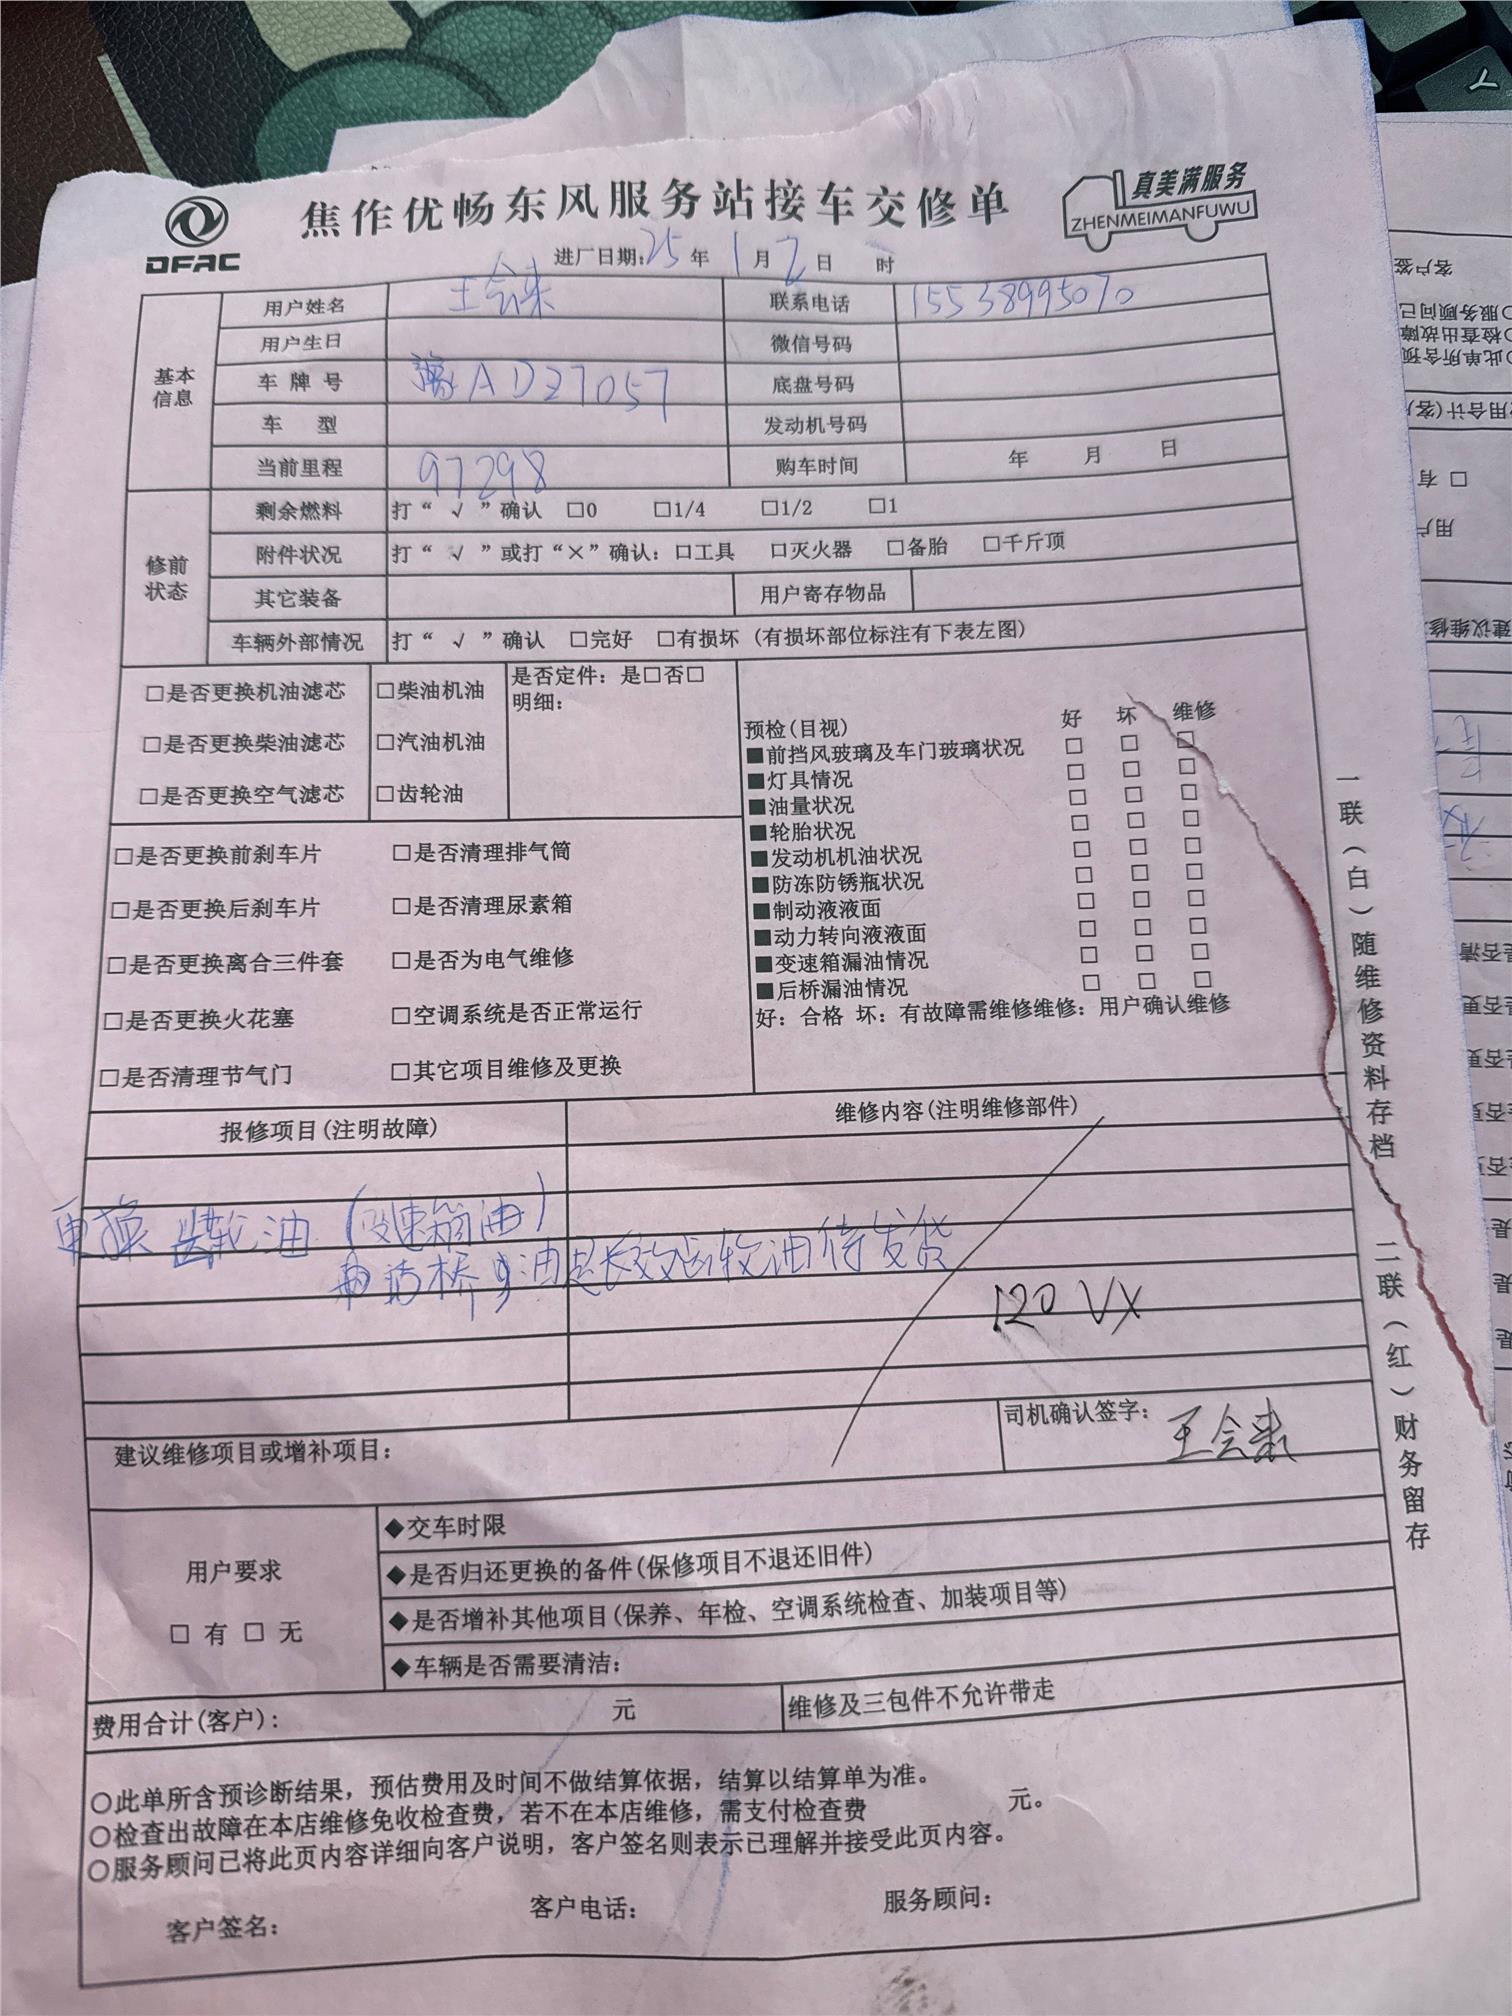 DFAC
焦作优畅东风服务站接车交修单
真美满服务
ZHENMEIMANFUWU
进厂日期:25年1月2日 时
基本信息
用户姓名 王会来 联系电话 15538995070
用户生日 微信号码
车牌号 豫AD27057 底盘号码
车 型 发动机号码
当前里程 97298 购车时间 年 月 日
修前状态
剩余燃料 打“√”确认 □0 □1/4 □1/2 □1
附件状况 打“√”或打“×”确认: □工具 □灭火器 □备胎 □千斤顶
其它装备 用户寄存物品
车辆外部情况 打“√”确认 □完好 □有损坏 (有损坏部位标注有下表左图)
□是否更换机油滤芯 □柴油机油 是否定件: 是□否□
明细:
□是否更换柴油滤芯 □汽油机油
□是否更换空气滤芯 □齿轮油
□是否更换前刹车片 □是否清理排气筒
□是否更换后刹车片 □是否清理尿素箱
□是否更换离合三件套 □是否为电气维修
□是否更换火花塞 □空调系统是否正常运行
□是否清理节气门 □其它项目维修及更换
预检(目视) 好 坏 维修
■前挡风玻璃及车门玻璃状况 □ □ □
■灯具情况 □ □ □
■油量状况 □ □ □
■轮胎状况 □ □ □
■发动机机油状况 □ □ □
■防冻防锈瓶状况 □ □ □
■制动液液面 □ □ □
■动力转向液液面 □ □ □
■变速箱漏油情况 □ □ □
■后桥漏油情况 □ □ □
好: 合格 坏: 有故障需维修维修: 用户确认维修
报修项目(注明故障) 维修内容(注明维修部件)
更换 齿轮油 (变速箱油)
后桥 油是长效齿轮油待发货
120 VX
建议维修项目或增补项目: 司机确认签字: 王会来
用户要求
□ 有 □ 无
◆交车时限
◆是否归还更换的备件(保修项目不退还旧件)
◆是否增补其他项目(保养、年检、空调系统检查、加装项目等)
◆车辆是否需要清洁:
费用合计(客户): 元 维修及三包件不允许带走
○此单所含预诊断结果，预估费用及时间不做结算依据，结算以结算单为准。
○检查出故障在本店维修免收检查费，若不在本店维修，需支付检查费 元。
○服务顾问已将此页内容详细向客户说明，客户签名则表示已理解并接受此页内容。
客户签名: 客户电话: 服务顾问:
一联(白)随维修资料存档 二联(红)财务留存